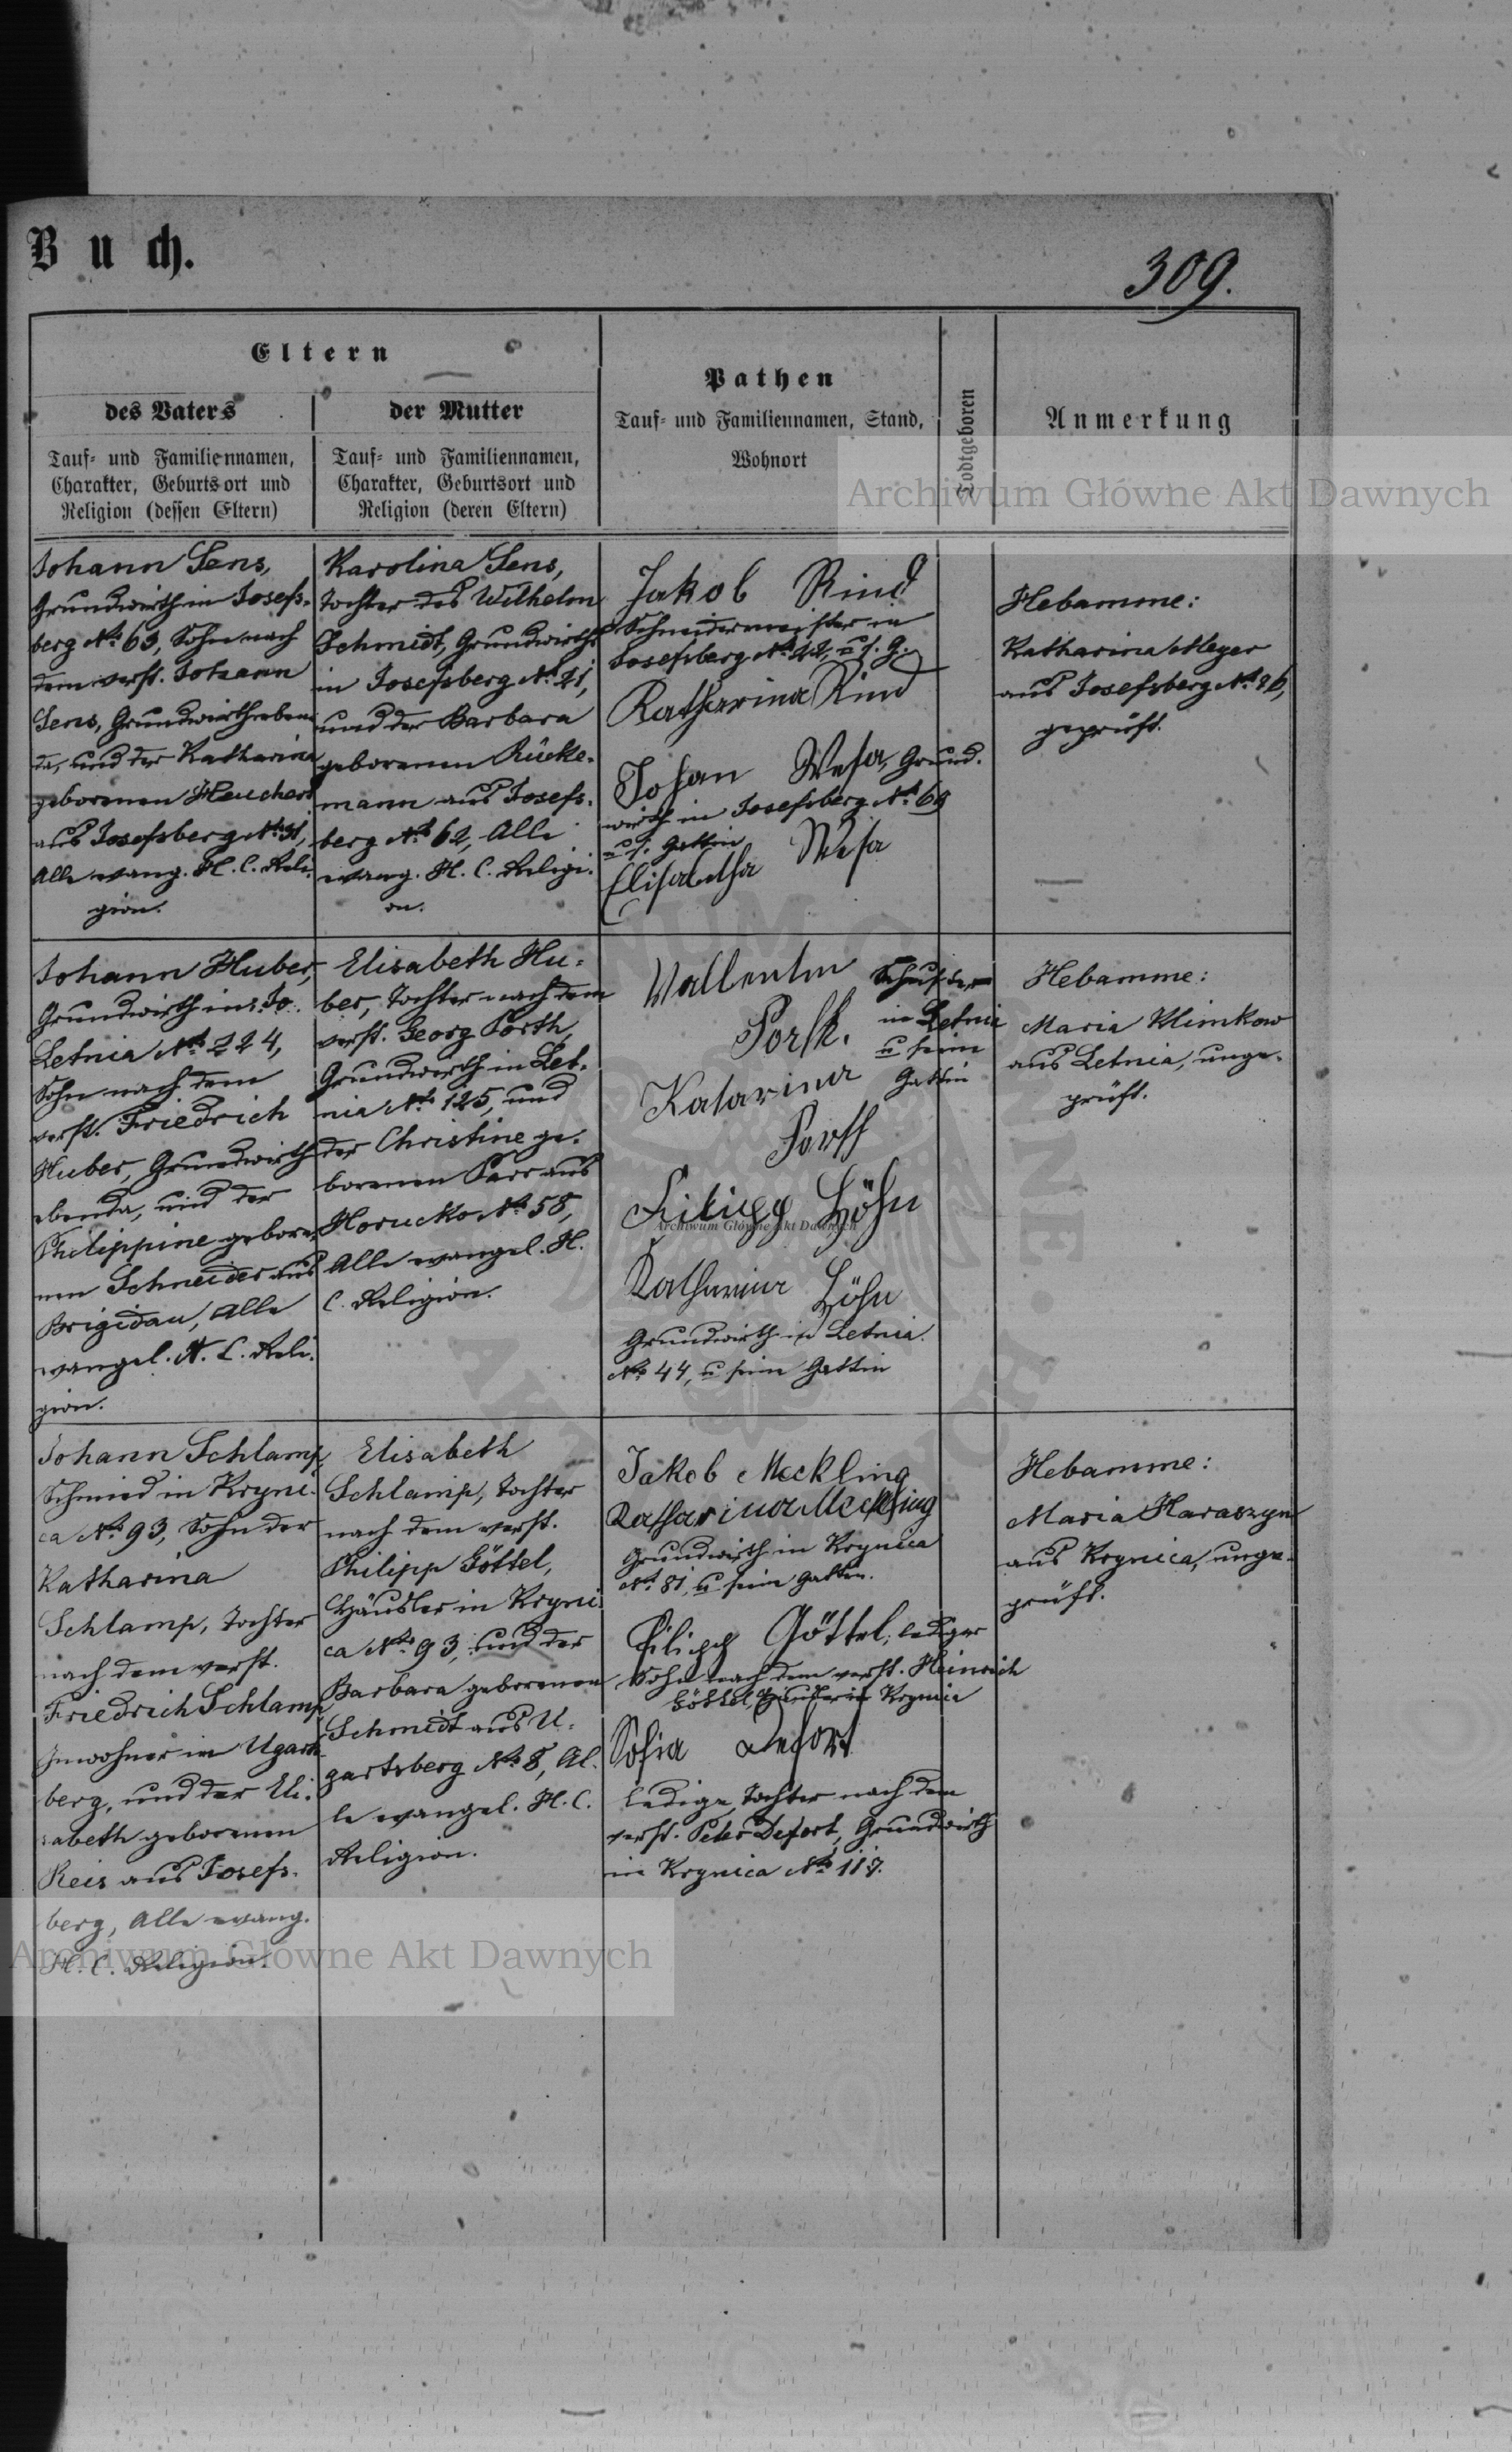 Buch.
309.
Eltern
des Vaters
Tauf- und Familiennamen,
Charakter, Geburtsort und
Religion (dessen Eltern)
der Mutter
Tauf- und Familiennamen,
Charakter, Geburtsort und
Religion (deren Eltern)
Pathen
Tauf- und Familiennamen, Stand,
Wohnort
Todtgeboren
Anmerkung
Archiwum Główne Akt Dawnych
Johann Sens,
Grundwirth in Josefs-
berg No 63, Sohn nach
dem verst. Johann
Sens, Grundwirth eben
da, und der Katharina
geborenen Heuchert
aus Josefsberg No 31,
Alle evang. H. C. Reli-
gion.
Karolina Sens,
Tochter des Wilhelm
Schmidt, Grundwirths
in Josefsberg No 21,
und der Barbara
geborenen Rücke-
mann aus Josefs-
berg No 62, Alle
evang. H. C. Religi-
on.
Jakob Rind
Schneidermeister in
Josefsberg No 22, u s. G.
Katharina Rind
Johan Wesa, Grund-
wirth in Josefsberg No
u s. Gattin
Elisabetha Wesa
Hebamme:
Katharina Meyer
aus Josefsberg No
geprüft.
Johann Huber,
Grundwirth in
Letnia No 224,
Sohn nach dem
verst. Friedrich
Huber, Grundwirth
ebenda, und der
Philippine gebore-
nen Schneider aus
Brigidau, Alle
evangel. H. C. Reli-
gion.
Elisabeth Hu-
ber, Tochter nach dem
verst. Georg Porth,
Grundwirth in Let-
nia No 125, und
der Christine ge-
borenen Parr aus
Horucko No 58,
Alle evangel. H.
C. Religion.
Wallentin Schuster
Porth. in Letnia
u seine
Katarina Gattin
Porth
Filipp Höhn
Archiwum Główne Akt Dawnych
Katharina Höhn
Grundwirth in Letnia
No 44, u seine Gattin
Hebamme:
Maria Klimkow
aus Letnia, unge-
prüft.
Johann Schlamp,
Schmied in Kryni-
ca No 93, Sohn der
Katharina
Schlamp, Tochter
nach dem verst.
Friedrich Schlamp,
Inwohner in Ugarts-
berg, und der Eli-
sabeth geborenen
Reis aus Josefs-
berg, Alle evang.
H. C. Religion.
Elisabeth
Schlamp, Tochter
nach dem verst.
Philipp Göttel,
Häusler in Kryni-
ca No 93, und der
Barbara geborenen
Schmidt aus U-
gartsberg No 8, Al-
le evangel. H. C.
Religion.
Jakob Meckling
Katharina Meckling
Grundwirth in Krynica
No 81, u seine Gattin.
Filipp Göttel, lediger
Sohn nach dem verst. Heinrich
Göttel, in Krynica
Sofia Defort
ledige Tochter nach dem
verst. Peter Defort, Grundwirth
in Krynica No 117.
Hebamme:
Maria Haraszyn
aus Krynica, unge-
prüft.
Archiwum Główne Akt Dawnych